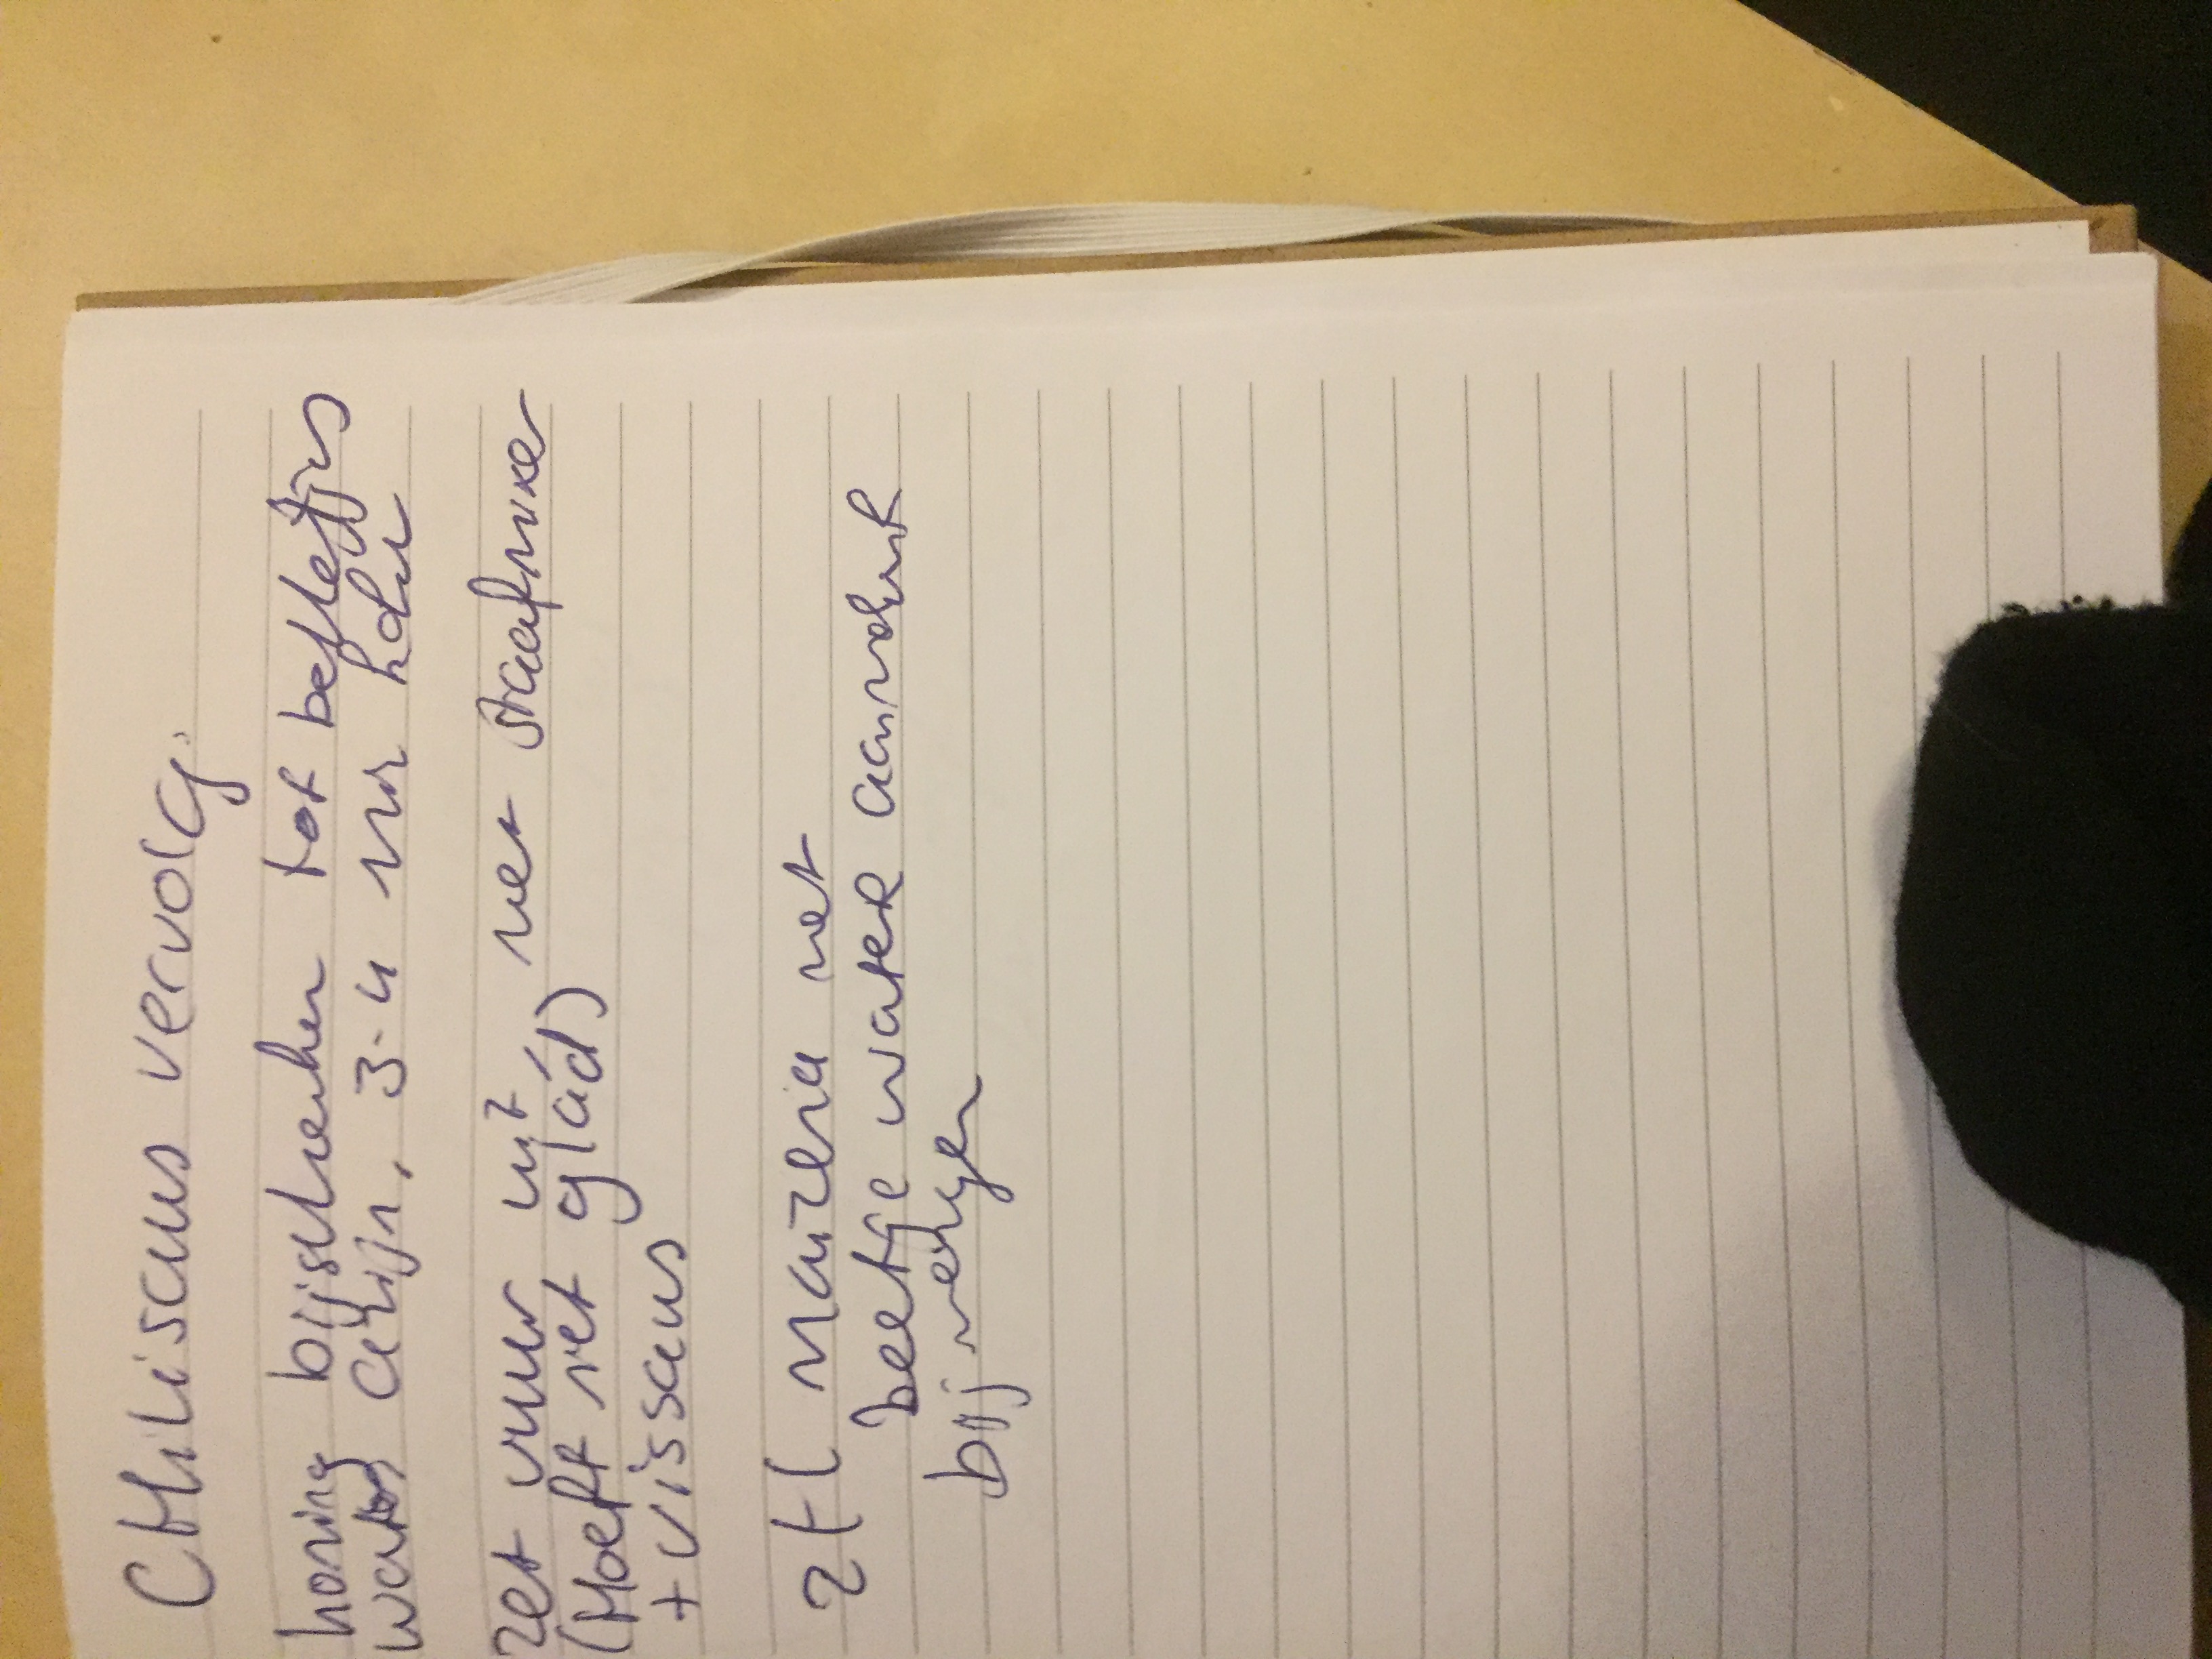 CHiLiSaus vervolg.
honing bijschenken tot belletjes
water azijn, 3-4 min koken
zet vuur uit, met staafmixer
(Hoeft niet glad)
+ vissaus
2 tl maizena met
beetje water
bijmengen